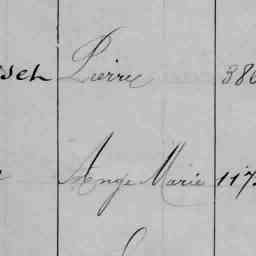 seh Pierre 386
Ange Marie 117